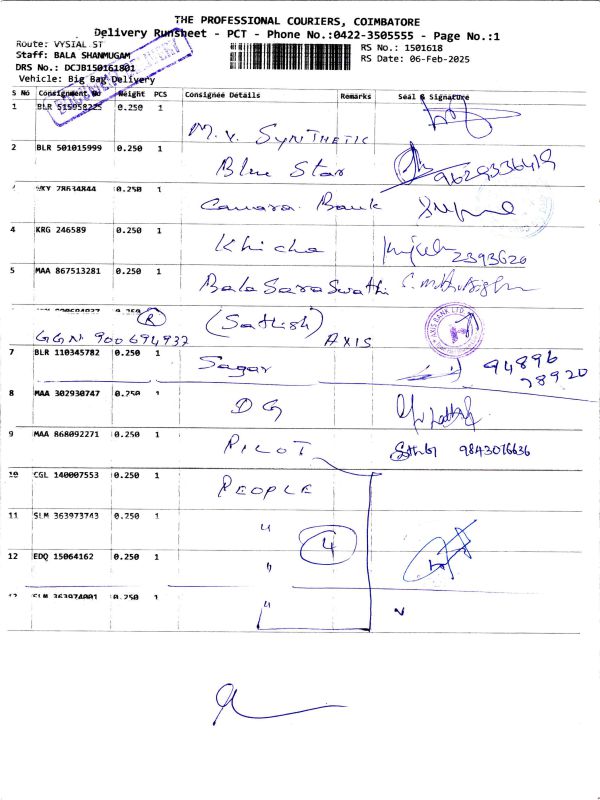 THE PROFESSIONAL COURIERS, COIMBATORE
Delivery RunSheet - PCT - Phone No.:0422-3505555 - Page No.:1
Route: VYSIAL ST
RS No.: 1501618
Staff: BALA SHANMUGAM
RS Date: 06-Feb-2025
DRS No.: DCJB150161801
Vehicle: Big Bag Delivery
S No Consignment No Weight PCS Consignee Details Remarks Seal & Signature
1 BLR 515958225 0.250 1
M.V. SYNTHETIC
2 BLR 501015999 0.250 1
Blue Star 9629336419
78634844 0.250 1
Canara Bank
4 KRG 246589 0.250 1
Khicha 2393620
5 MAA 867513281 0.250 1
Bala Sara Swathi
R (Sathish)
GGN 900694937 AXIS
AXIS BANK LTD
7 BLR 110345782 0.250 1
Sagar 94896
78920
8 MAA 302930747 0.250 1
DG
9 MAA 868092271 0.250 1
PILOT 9843076636
10 CGL 140007553 0.250 1
PEOPLE
11 SLM 363973743 0.250 1
"
4
12 EDQ 15064162 0.250 1
"
SLM 363974001 0.250 1
"